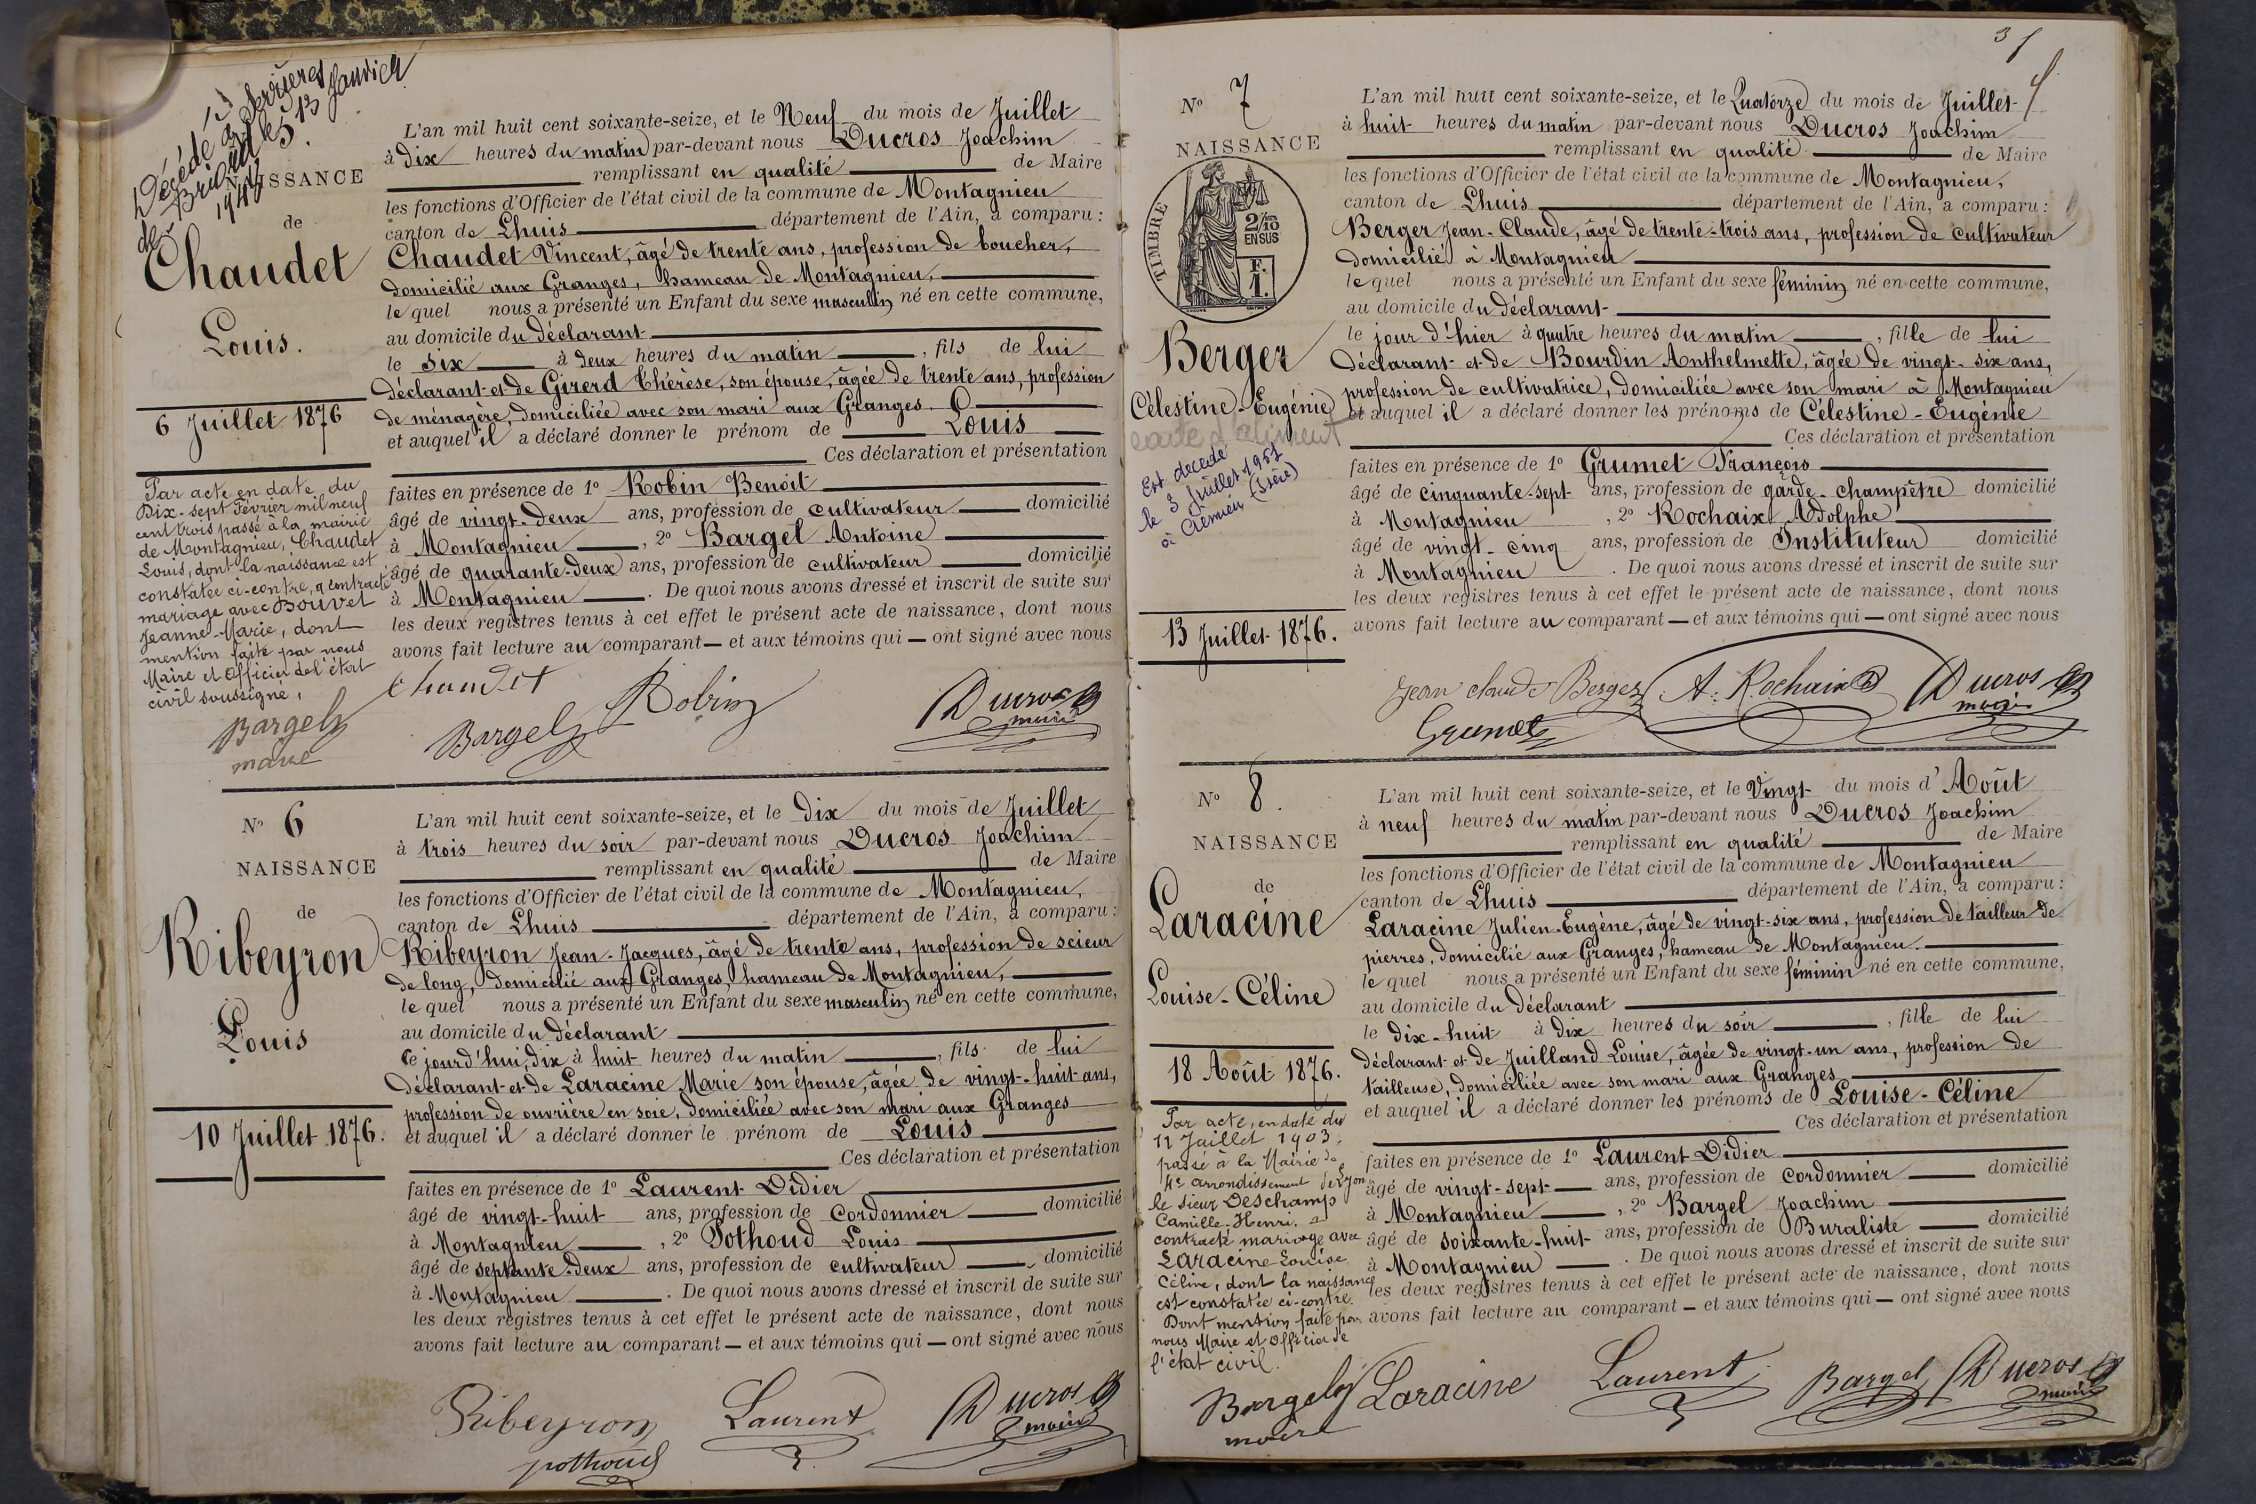 Décédé à Serrières
de Briord le 13 Janvier
NAISSANCE
de
Chaudet
Louis.
6 Juillet 1876
Par acte en date du
Dix-sept Février mil neuf
cent trois passé à la mairie
de Montagnieu, Chaudet
Louis, dont la naissance est
constatée ci-contre, a contracté
mariage avec Bouvet
Jeanne-Marie, dont
mention faite par nous
Maire et Officier de l'état
civil soussigné,
Bargel
maire
L'an mil huit cent soixante-seize, et le Neuf du mois de Juillet
à dix heures du matin par-devant nous Ducros Joachim
remplissant en qualité de Maire
les fonctions d'Officier de l'état civil de la commune de Montagnieu
canton de Lhuis département de l'Ain, a comparu :
Chaudet Vincent, âgé de trente ans, profession de boucher,
domicilié aux Granges, hameau de Montagnieu,
lequel nous a présenté un Enfant du sexe masculin né en cette commune,
au domicile du déclarant
le six à deux heures du matin, fils de lui
déclarant et de Girerd Thérèse, son épouse, âgée de trente ans, profession
de ménagère, domiciliée avec son mari aux Granges
et auquel il a déclaré donner le prénom de Louis
Ces déclaration et présentation
faites en présence de 1° Robin Benoît
âgé de vingt-deux ans, profession de cultivateur domicilié
à Montagnieu, 2° Bargel Antoine
âgé de quarante-deux ans, profession de cultivateur domicilié
à Montagnieu. De quoi nous avons dressé et inscrit de suite sur
les deux registres tenus à cet effet le présent acte de naissance, dont nous
avons fait lecture au comparant — et aux témoins qui — ont signé avec nous
Chaudet
Bargel
Robin
Ducros
maire
N° 6
NAISSANCE
de
Ribeyron
Louis
10 Juillet 1876.
L'an mil huit cent soixante-seize, et le Dix du mois de Juillet
à trois heures du soir par-devant nous Ducros Joachim
remplissant en qualité de Maire
les fonctions d'Officier de l'état civil de la commune de Montagnieu,
canton de Lhuis département de l'Ain, a comparu :
Ribeyron Jean-Jacques, âgé de trente ans, profession de scieur
de long, domicilié aux Granges, hameau de Montagnieu,
lequel nous a présenté un Enfant du sexe masculin né en cette commune,
au domicile du déclarant
ce jourd'hui, dix à huit heures du matin, fils de lui
déclarant et de Laracine Marie son épouse, âgée de vingt-huit ans,
profession de ouvrière en soie, domiciliée avec son mari aux Granges
et auquel il a déclaré donner le prénom de Louis
Ces déclaration et présentation
faites en présence de 1° Laurent Didier
âgé de vingt-huit ans, profession de Cordonnier domicilié
à Montagnieu, 2° Pothoud Louis
âgé de septante-deux ans, profession de cultivateur domicilié
à Montagnieu. De quoi nous avons dressé et inscrit de suite sur
les deux registres tenus à cet effet le présent acte de naissance, dont nous
avons fait lecture au comparant — et aux témoins qui — ont signé avec nous
Ribeyron
Laurent
Ducros
maire
pothoud
N° 7
NAISSANCE
TIMBRE
2/10
EN SUS
F.
1.
Berger
Célestine-Eugénie
Est décédé
le 3 Juillet 1951
à Crémieu (Isère)
13 Juillet 1876.
L'an mil huit cent soixante-seize, et le Quatorze du mois de Juillet
à huit heures du matin par-devant nous Ducros Joachim
remplissant en qualité de Maire
les fonctions d'Officier de l'état civil de la commune de Montagnieu,
canton de Lhuis département de l'Ain, a comparu :
Berger Jean-Claude, âgé de trente-trois ans, profession de cultivateur
domicilié à Montagnieu
lequel nous a présenté un Enfant du sexe féminin né en cette commune,
au domicile du déclarant
le jour d'hier à quatre heures du matin, fille de lui
déclarant et de Bourdin Anthelmette, âgée de vingt-six ans,
profession de cultivatrice, domiciliée avec son mari à Montagnieu
et auquel il a déclaré donner les prénoms de Célestine-Eugénie
Ces déclaration et présentation
faites en présence de 1° Grumet François
âgé de cinquante-sept ans, profession de garde-champêtre domicilié
à Montagnieu, 2° Rochaix Adolphe
âgé de vingt-cinq ans, profession de Instituteur domicilié
à Montagnieu. De quoi nous avons dressé et inscrit de suite sur
les deux registres tenus à cet effet le présent acte de naissance, dont nous
avons fait lecture au comparant — et aux témoins qui — ont signé avec nous
Jean claude Berger
A. Rochaix
Ducros
maire
Grumet
N° 8.
NAISSANCE
de
Laracine
Louise-Céline
18 Août 1876.
Par acte, en date du
11 Juillet 1903,
passé à la Mairie du
4e arrondissement de Lyon
le sieur Deschamp
Camille-Henri, a
contracté mariage avec
Laracine Louise
Céline, dont la naissance
est constatée ci-contre.
Dont mention faite par
nous Maire et Officier de
l'état civil.
Bargel
maire
L'an mil huit cent soixante-seize, et le Vingt du mois d'Août
à neuf heures du matin par-devant nous Ducros Joachim
remplissant en qualité de Maire
les fonctions d'Officier de l'état civil de la commune de Montagnieu
canton de Lhuis département de l'Ain, a comparu :
Laracine Julien-Eugène, âgé de vingt-six ans, profession de tailleur de
pierres, domicilié aux Granges, hameau de Montagnieu.
lequel nous a présenté un Enfant du sexe féminin né en cette commune,
au domicile du déclarant
le dix-huit à dix heures du soir, fille de lui
déclarant et de Juilland Louise, âgée de vingt-un ans, profession de
tailleuse, domiciliée avec son mari aux Granges
et auquel il a déclaré donner les prénoms de Louise-Céline
Ces déclaration et présentation
faites en présence de 1° Laurent Didier
âgé de vingt-sept ans, profession de Cordonnier domicilié
à Montagnieu, 2° Bargel Joachim
âgé de soixante-huit ans, profession de Buraliste domicilié
à Montagnieu. De quoi nous avons dressé et inscrit de suite sur
les deux registres tenus à cet effet le présent acte de naissance, dont nous
avons fait lecture au comparant — et aux témoins qui — ont signé avec nous
Laracine
Laurent
Bargel
Ducros
maire